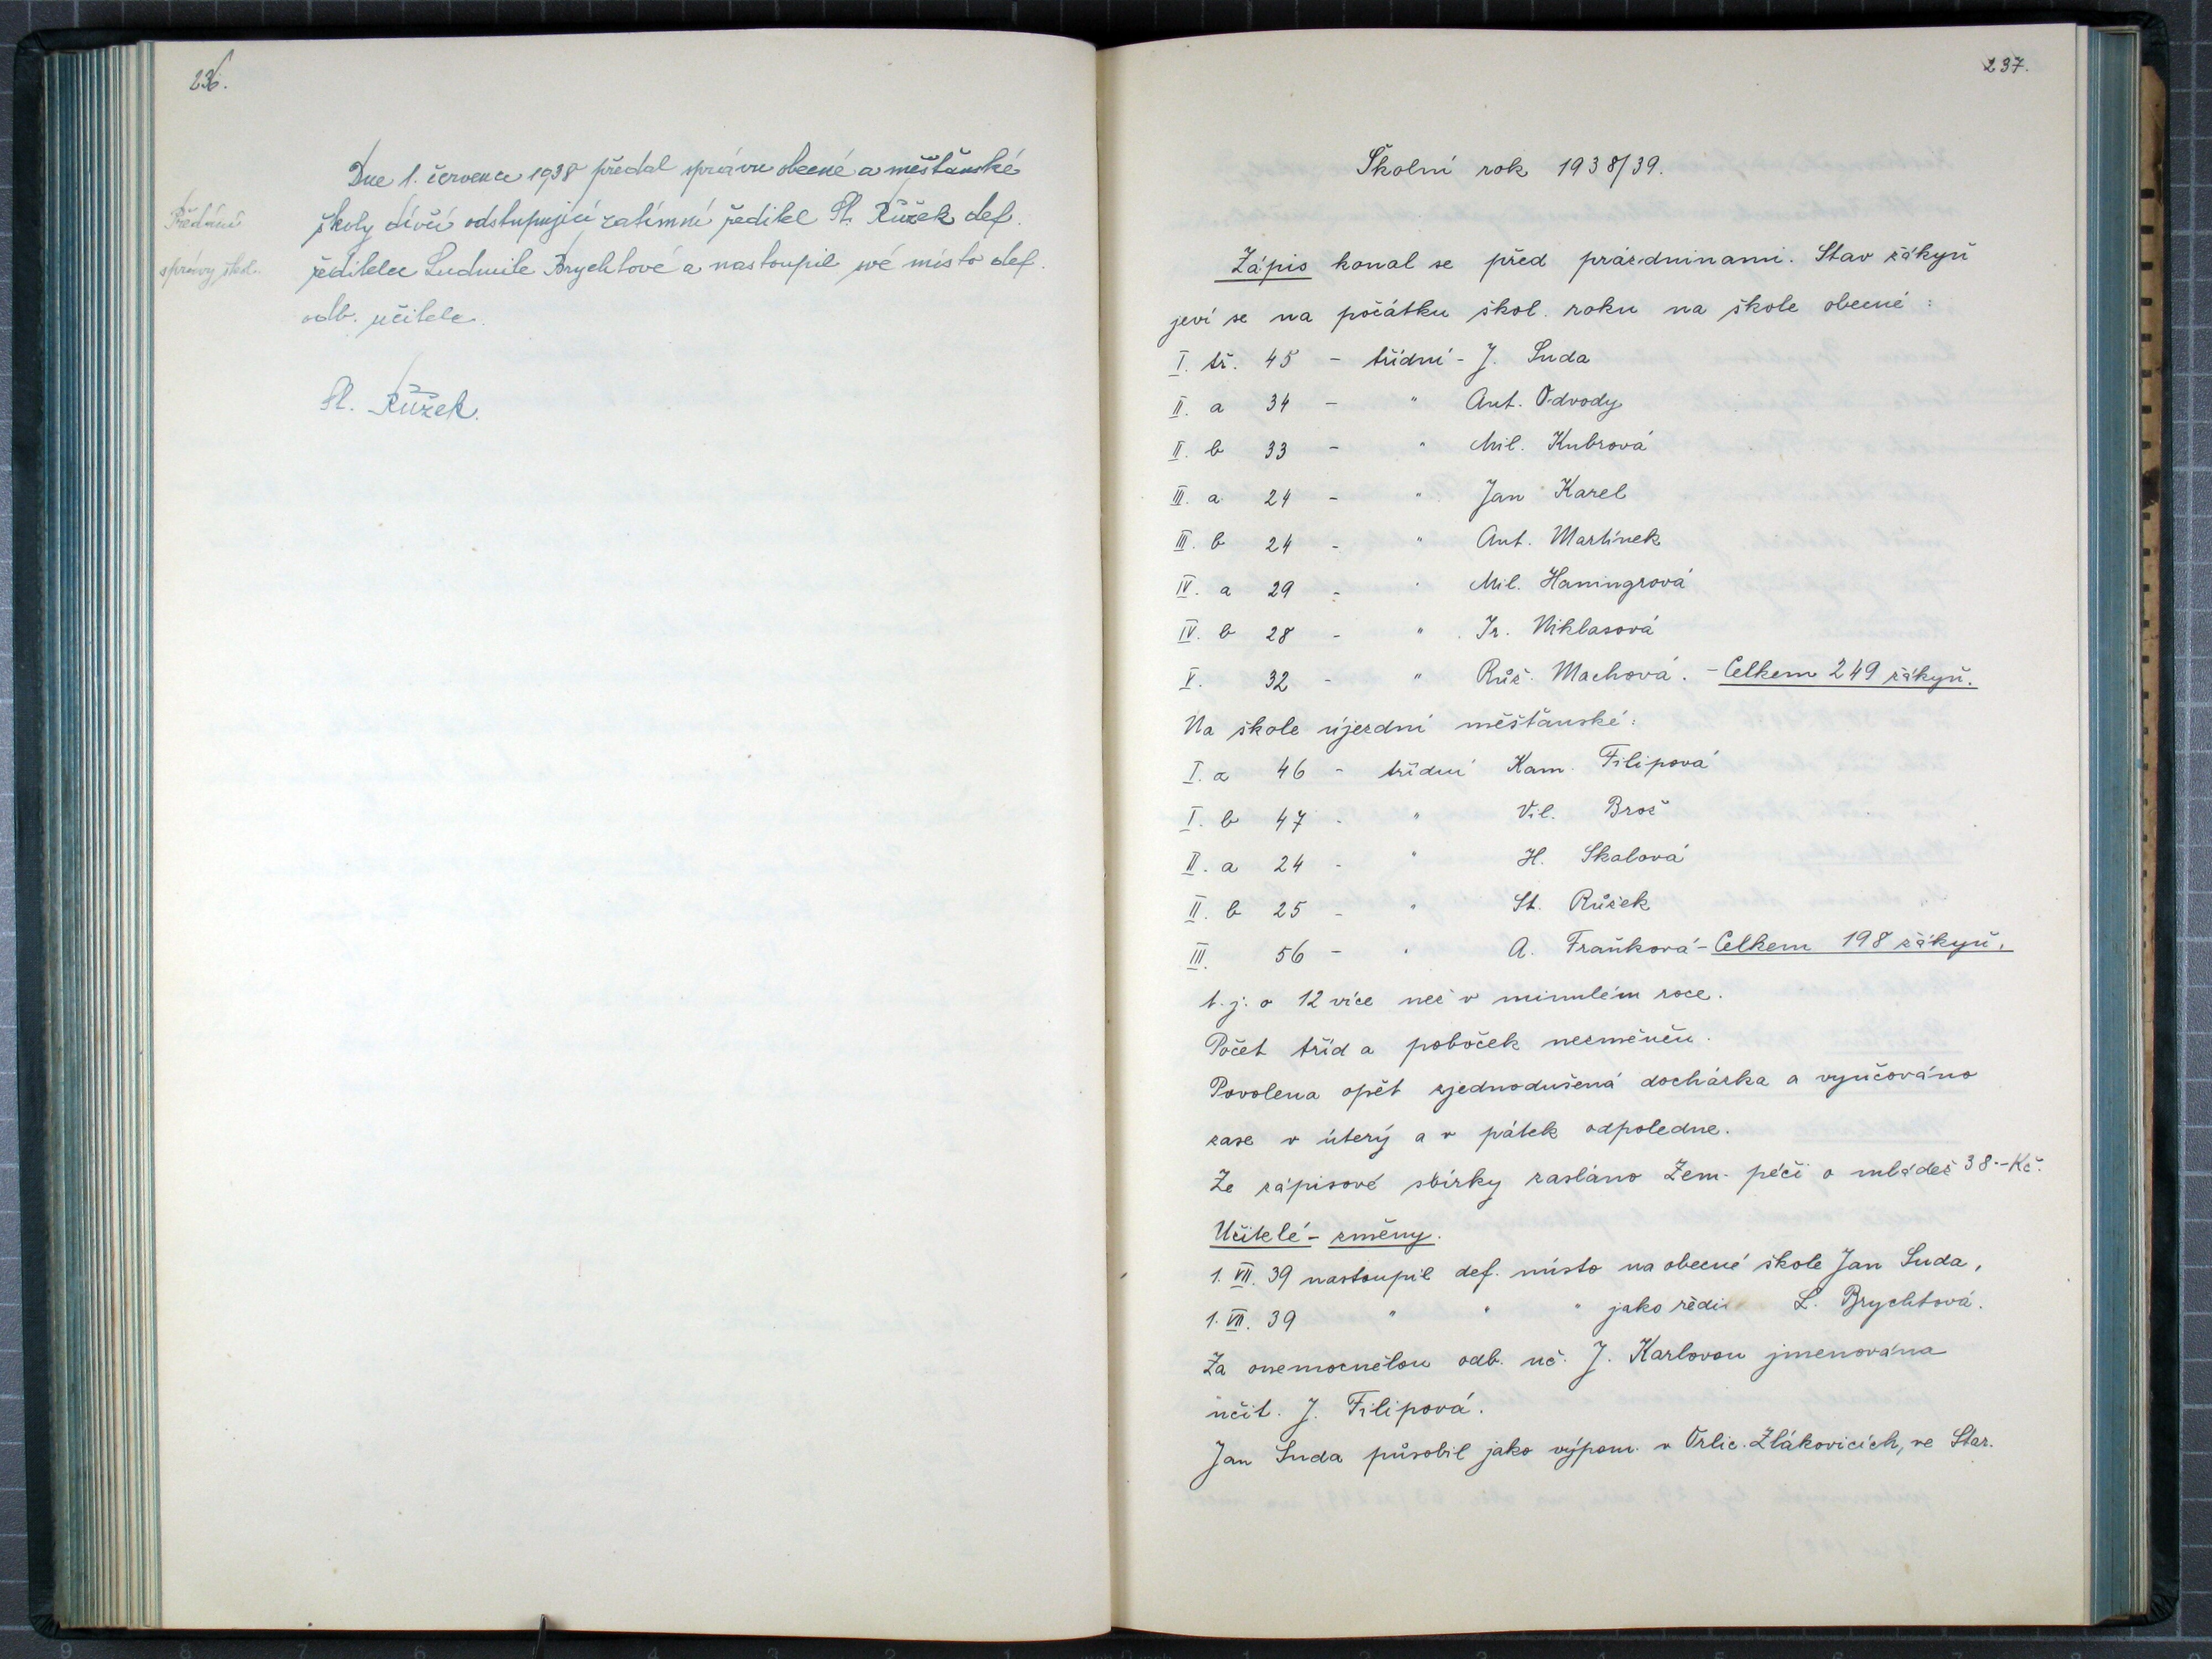 236.
Dne 1. července 1938 předal správu obecné a měšťanské
Předání
školy dívčí odstupující zatímní ředitel St. Růžek def.
správy škol.
ředitelce Ludmile Brychtové a nastoupil své místo def.
odb. učitele.
St. Růžek.
237.
Školní rok 1938/39.
Zápis konal se před prázdninami. Stav žákyň
jeví se na počátku škol. roku na škole obecné:
I. tř. 45 - třídní - J. Suda
II. a 34 - " Ant. Odvody
II. b 33 - " Mil. Kubrová
III. a 24 - " Jan Karel
III. b 24 - " Ant. Martínek
IV. a 29 - " Mil. Haningrová
IV. b 28 - " Ir. Niklasová
V. 32 - " Růž. Machová. - Celkem 249 žákyň.
Na škole újezdní měšťanské:
I. a 46 - třídní Kam. Filipová
I. b 47 - " Vil. Brož
II. a 24 - " H. Skalová
II. b 25 - " St. Růžek
III. 56 - " A. Fraňková - Celkem 198 žákyň,
t. j. o 12 více než v minulém roce.
Počet tříd a poboček nezměněn.
Povolena opět zjednodušená docházka a vyučováno
zase v úterý a v pátek odpoledne.
Ze zápisové sbírky zasláno Zem. péči o mládež 38.-Kč.
Učitelé - změny.
1. VII. 39 nastoupil def. místo na obecné škole Jan Suda,
1. VII. 39 " " " jako ředit. L. Brychtová.
Za onemocnělou odb. uč. J. Karlovou jmenována
učit. J. Filipová.
Jan Suda působil jako výpom. v Orlic. Zlákovicích, ve Star.